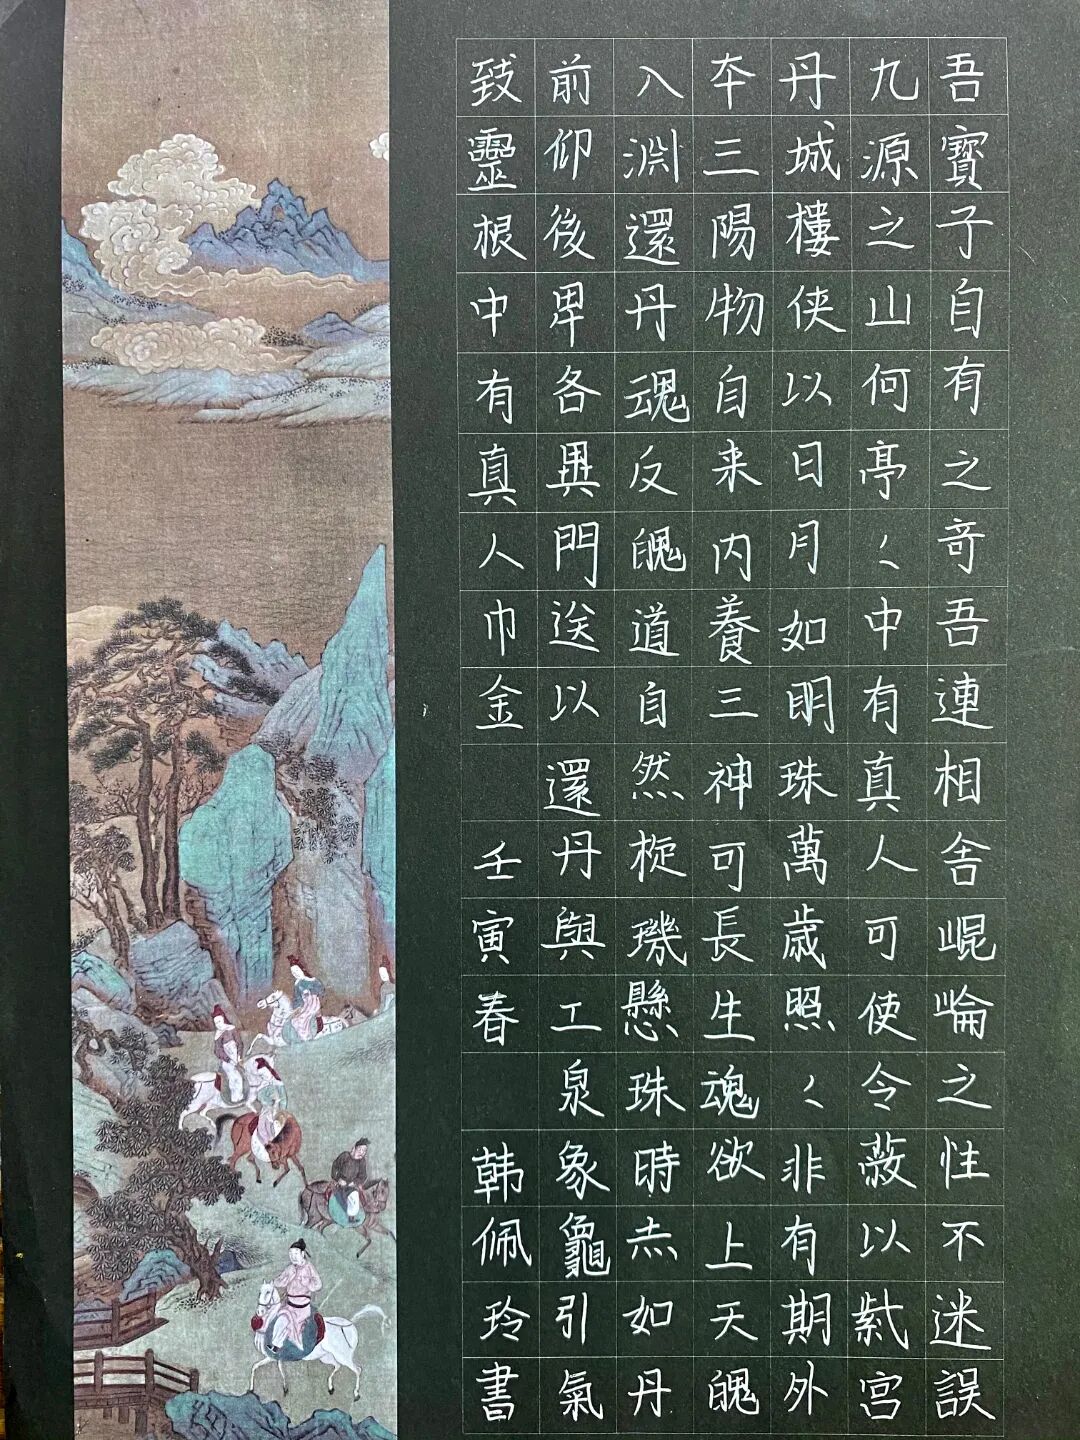 吾寶子自有之奇吾連相舍崐崘之性不迷誤
九源之山何亭〻中有真人可使令蔽以紫宫
丹城樓侠以日月如明珠萬歲照〻非有期外
夲三陽物自来内養三神可長生魂欲上天魄
入淵還丹魂反魄道自然㨁璣懸珠時赤如丹
前仰後卑各異門送以還丹與工泉象龜引氣
致靈根中有真人巾金
壬寅春
韩佩玲書